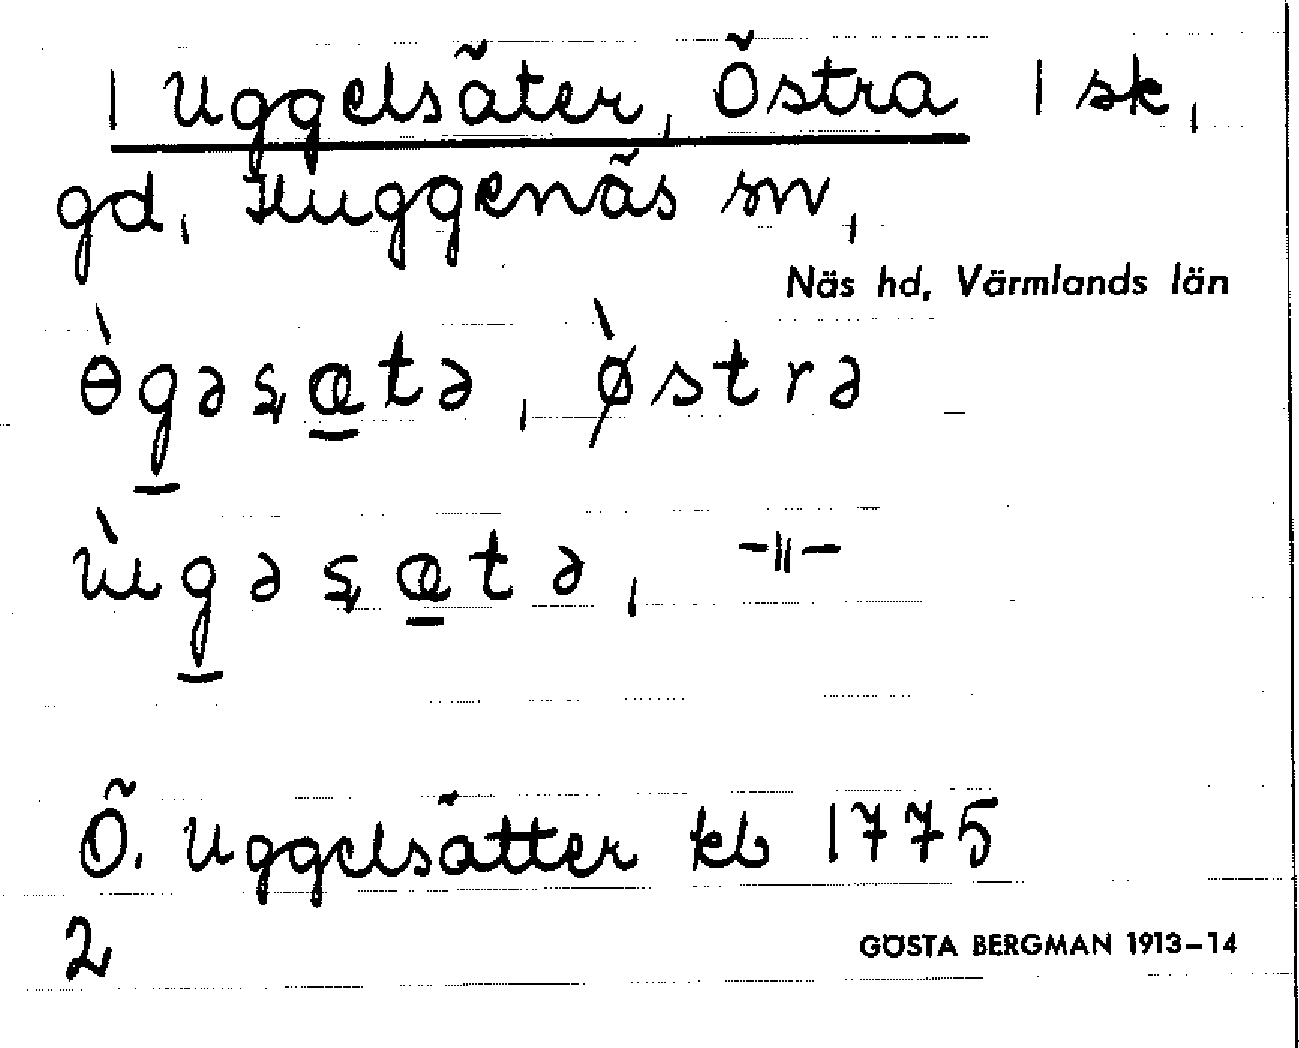 1 Uggelsäter, Östra 1 sk,
gd, Huggenäs sn,
Näs hd, Värmlands län
ɵ̀gəʂætə, ø̀strə
ɯ̀gəʂætə, -"-
Ö. Uggelsätter kb 1775
2
GÖSTA BERGMAN 1913-14